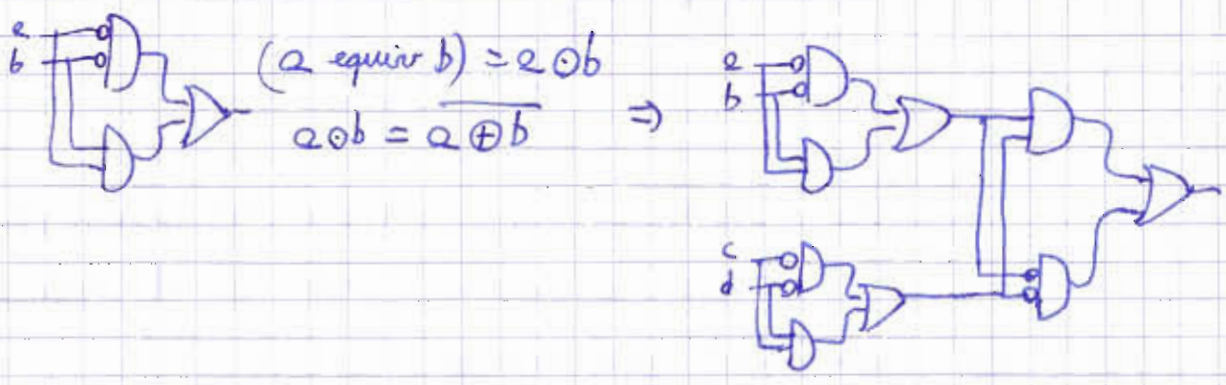 a
b
(a equiv b) = a⊙b
a⊙b = \overline{a⊕b} ⇒
a
b
c
d